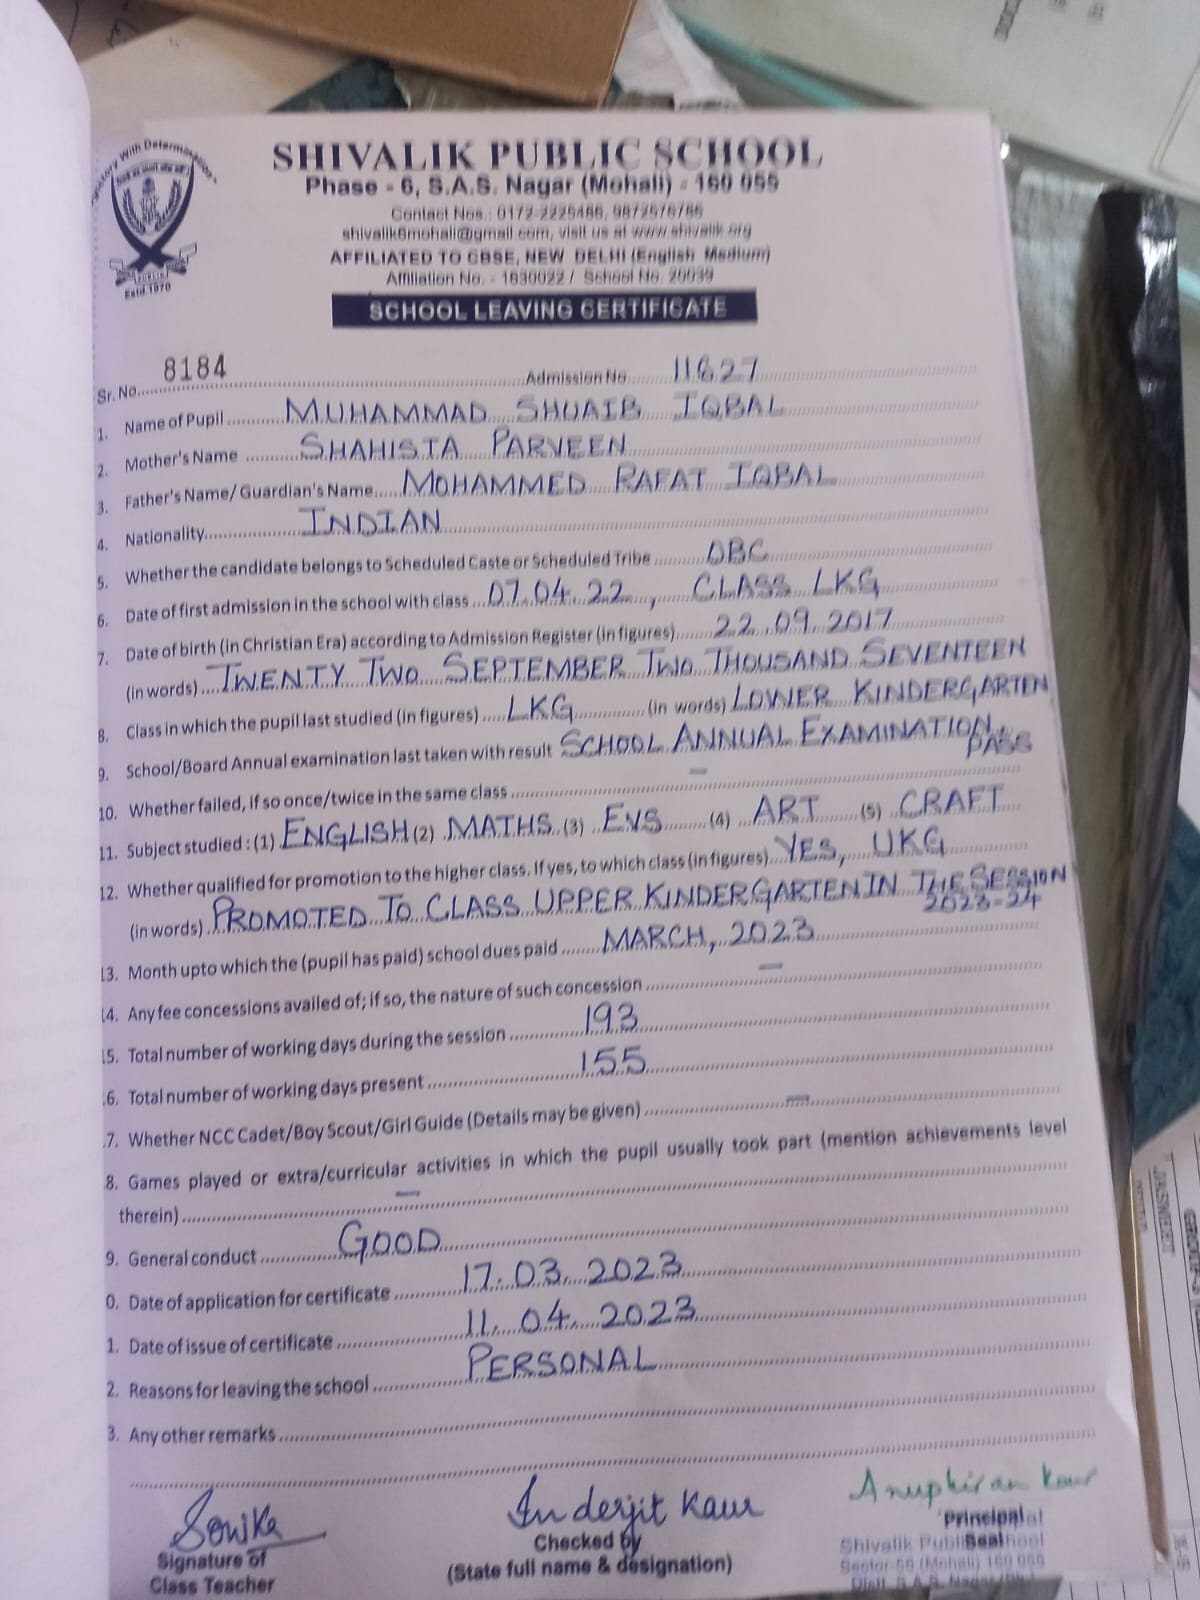 Victory With Determination
Estd.1970
SHIVALIK PUBLIC SCHOOL
Phase - 6, S.A.S. Nagar (Mohali) - 160 055
Contact Nos.: 0172-2225486, 9872576786
shivalik6mohali@gmail.com, visit us at www.shivalik.org
AFFILIATED TO CBSE, NEW DELHI (English Medium)
Affiliation No. - 1630022 / School No. 20039
SCHOOL LEAVING CERTIFICATE
Sr. No. 8184 Admission No 11627
1. Name of Pupil MUHAMMAD SHUAIB IQBAL
2. Mother's Name SHAHISTA PARVEEN
3. Father's Name/ Guardian's Name MOHAMMED RAFAT IQBAL
4. Nationality INDIAN
5. Whether the candidate belongs to Scheduled Caste or Scheduled Tribe OBC
6. Date of first admission in the school with class 07.04.22, CLASS LKG
7. Date of birth (in Christian Era) according to Admission Register (in figures) 22.09.2017
(in words) TWENTY TWO SEPTEMBER TWO THOUSAND SEVENTEEN
8. Class in which the pupil last studied (in figures) LKG (in words) LOWER KINDERGARTEN
9. School/Board Annual examination last taken with result SCHOOL ANNUAL EXAMINATION,
PASS
10. Whether failed, if so once/twice in the same class —
11. Subject studied : (1) ENGLISH (2) MATHS (3) EVS (4) ART (5) CRAFT
12. Whether qualified for promotion to the higher class. If yes, to which class (in figures) YES, UKG
(in words) PROMOTED TO CLASS UPPER KINDERGARTEN IN THE SESSION
2023-24
13. Month upto which the (pupil has paid) school dues paid MARCH, 2023
14. Any fee concessions availed of; if so, the nature of such concession —
15. Total number of working days during the session 193
.6. Total number of working days present 155
.7. Whether NCC Cadet/Boy Scout/Girl Guide (Details may be given) —
8. Games played or extra/curricular activities in which the pupil usually took part (mention achievements level
therein) —
9. General conduct GOOD
0. Date of application for certificate 17.03.2023
1. Date of issue of certificate 11.04.2023
2. Reasons for leaving the school PERSONAL
3. Any other remarks
Sonika
Signature of
Class Teacher
Inderjit Kaur
Checked by
(State full name & designation)
Anupkiran Kaur
Principal
Seal
Shivalik Public School
Sector-56 (Mohali) 160 055
Distt. S.A.S. Nagar (Pb.)